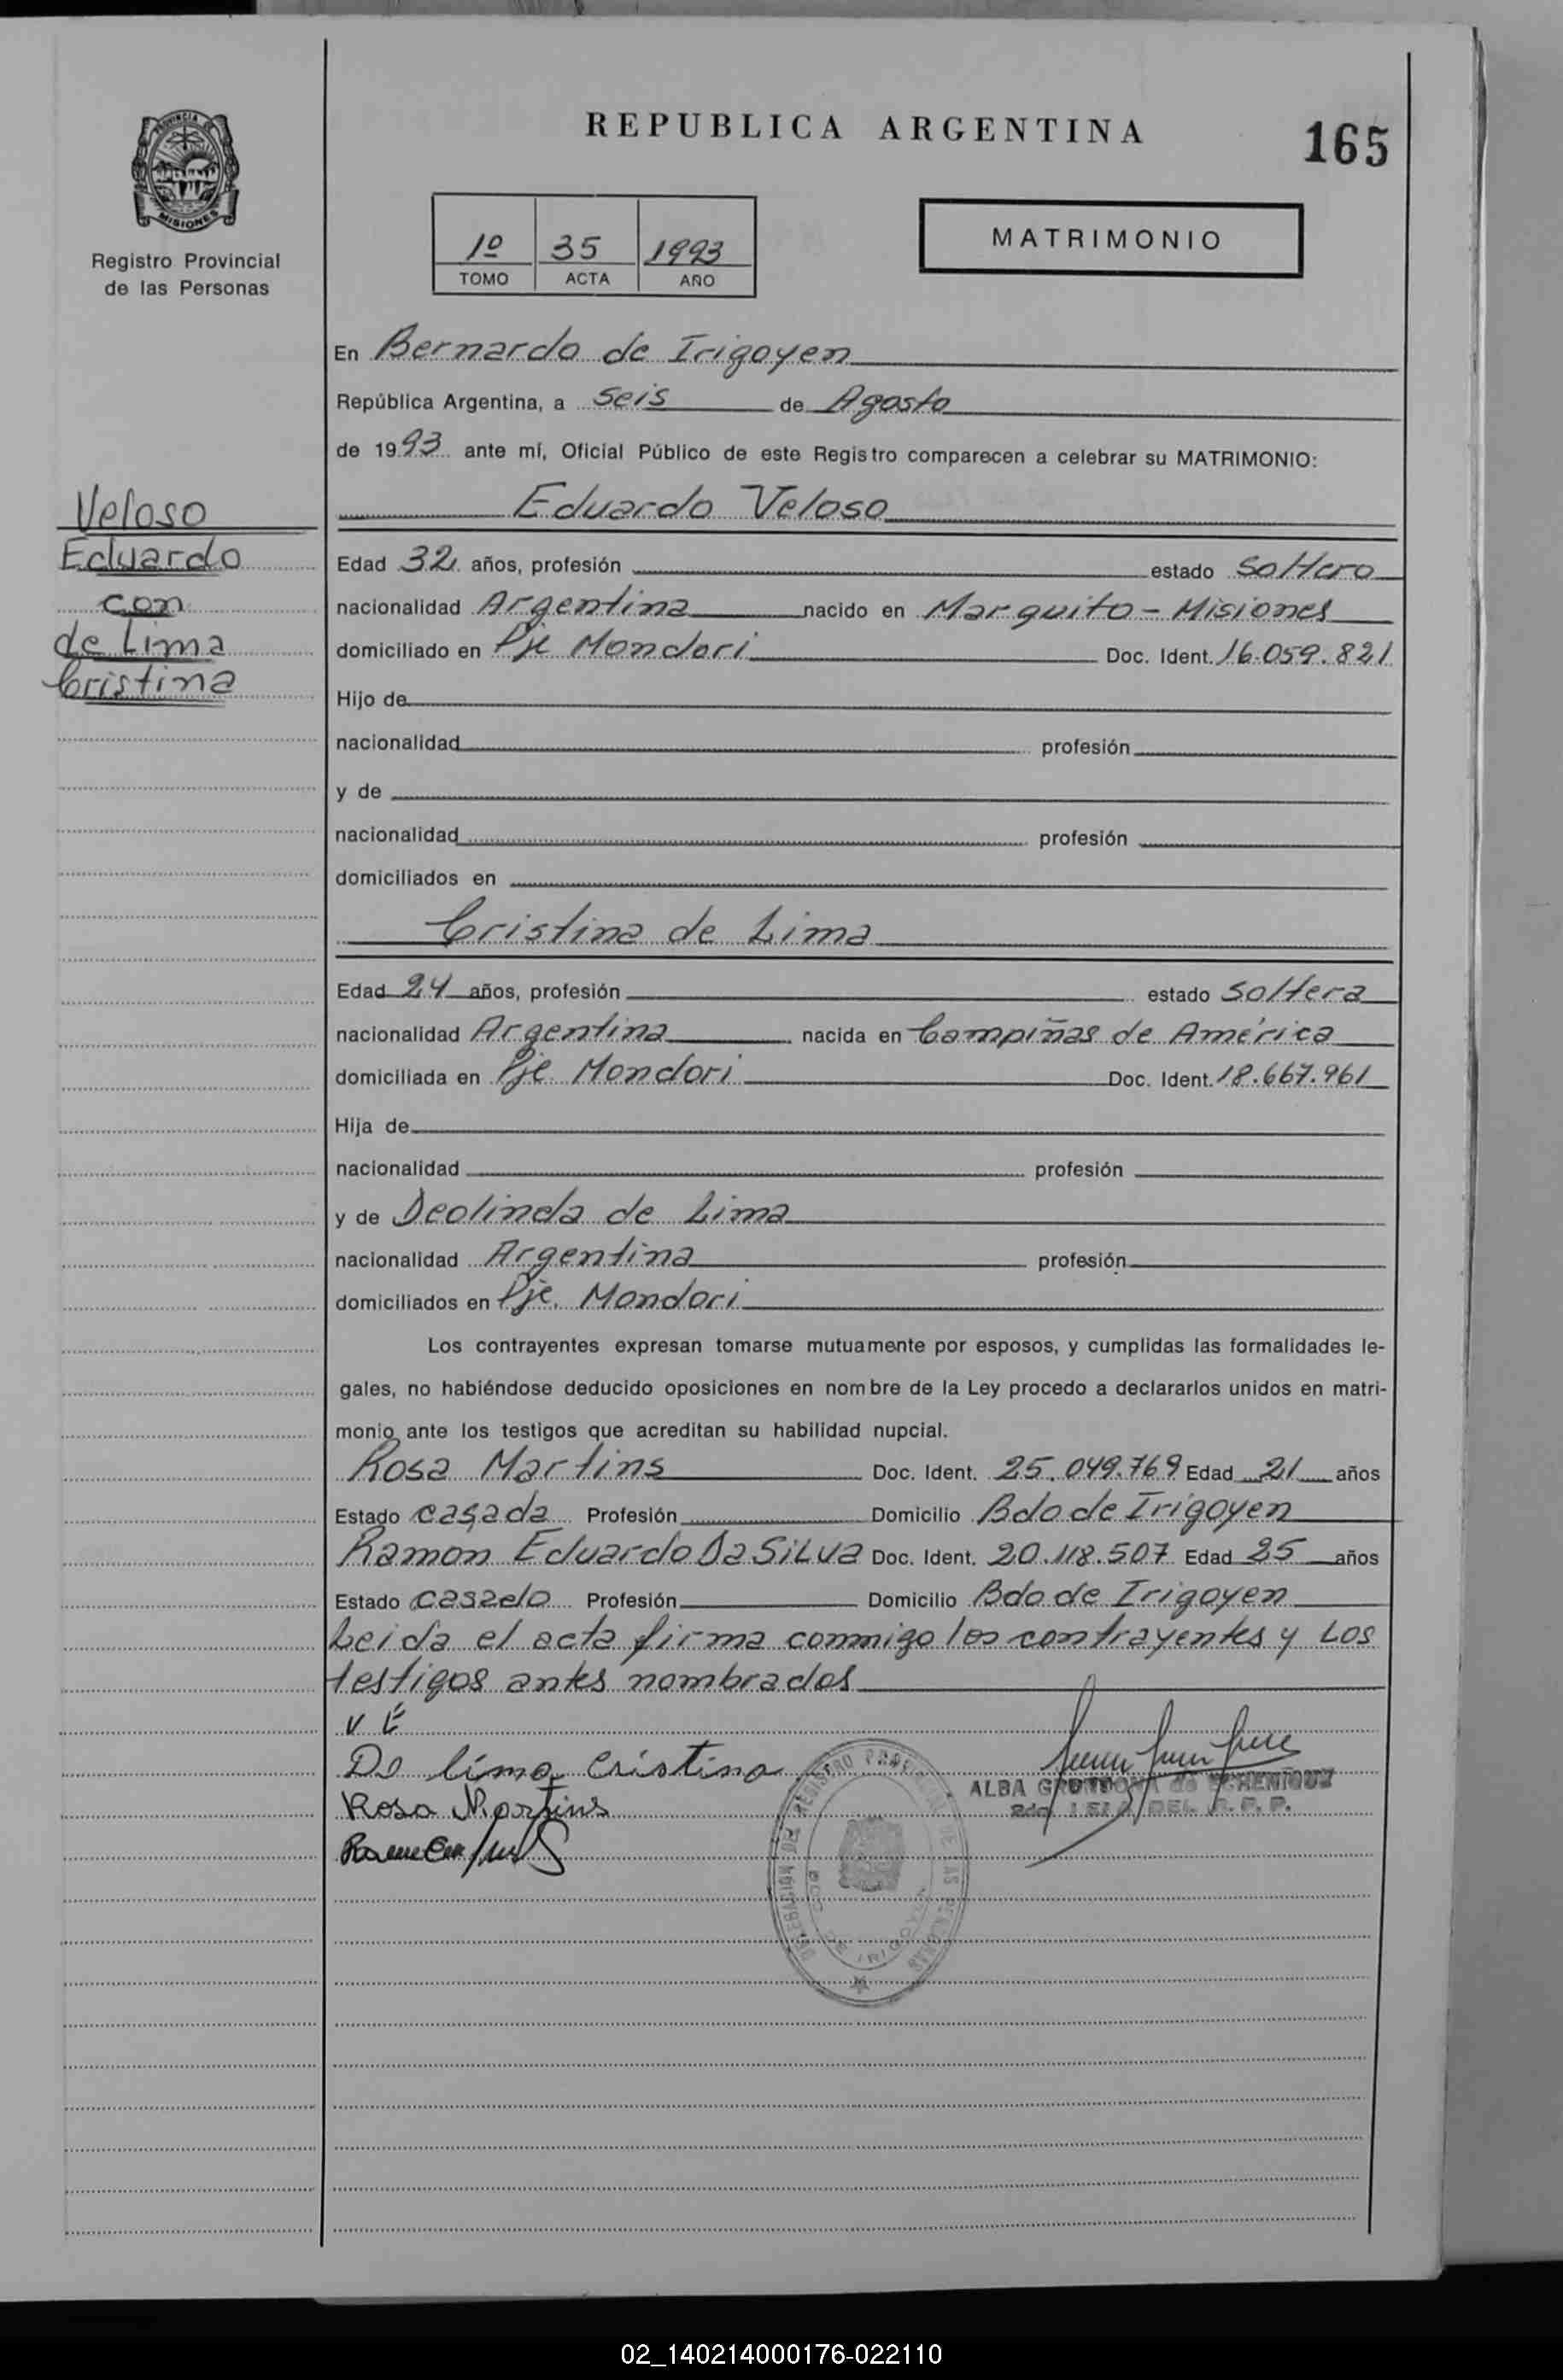 REPUBLICA ARGENTINA
165
PROVINCIA DE
MISIONES
Registro Provincial
de las Personas
1º 35 1993
TOMO ACTA AÑO
MATRIMONIO
En Bernardo de Irigoyen
República Argentina, a seis de Agosto
de 1993 ante mí, Oficial Público de este Registro comparecen a celebrar su MATRIMONIO:
Veloso
Eduardo
con
de Lima
Cristina
Eduardo Veloso
Edad 32 años, profesión estado Soltero
nacionalidad Argentina nacido en Marquito - Misiones
domiciliado en Pje Mondori Doc. Ident. 16.059.821
Hijo de
nacionalidad profesión
y de
nacionalidad profesión
domiciliados en
Cristina de Lima
Edad 24 años, profesión estado Soltera
nacionalidad Argentina nacida en Campiñas de América
domiciliada en Pje Mondori Doc. Ident. 18.667.961
Hija de
nacionalidad profesión
y de Deolinda de Lima
nacionalidad Argentina profesión
domiciliados en Pje. Mondori
Los contrayentes expresan tomarse mutuamente por esposos, y cumplidas las formalidades le-
gales, no habiéndose deducido oposiciones en nombre de la Ley procedo a declararlos unidos en matri-
monio ante los testigos que acreditan su habilidad nupcial.
Rosa Martins Doc. Ident. 25.049.769 Edad 21 años
Estado casada Profesión Domicilio Bdo de Irigoyen
Ramon Eduardo Da Silva Doc. Ident. 20.118.507 Edad 25 años
Estado casado Profesión Domicilio Bdo de Irigoyen
Leida el acta firma conmigo los contrayentes y Los
testigos antes nombrados
V E
De lima Cristina
Rosa Martins
ALBA
DEL R. P. P.
DELEGACION DEL REGISTRO PROVINCIAL DE LAS PERSONAS
BDO. DE IRIGOYEN
02_140214000176-022110